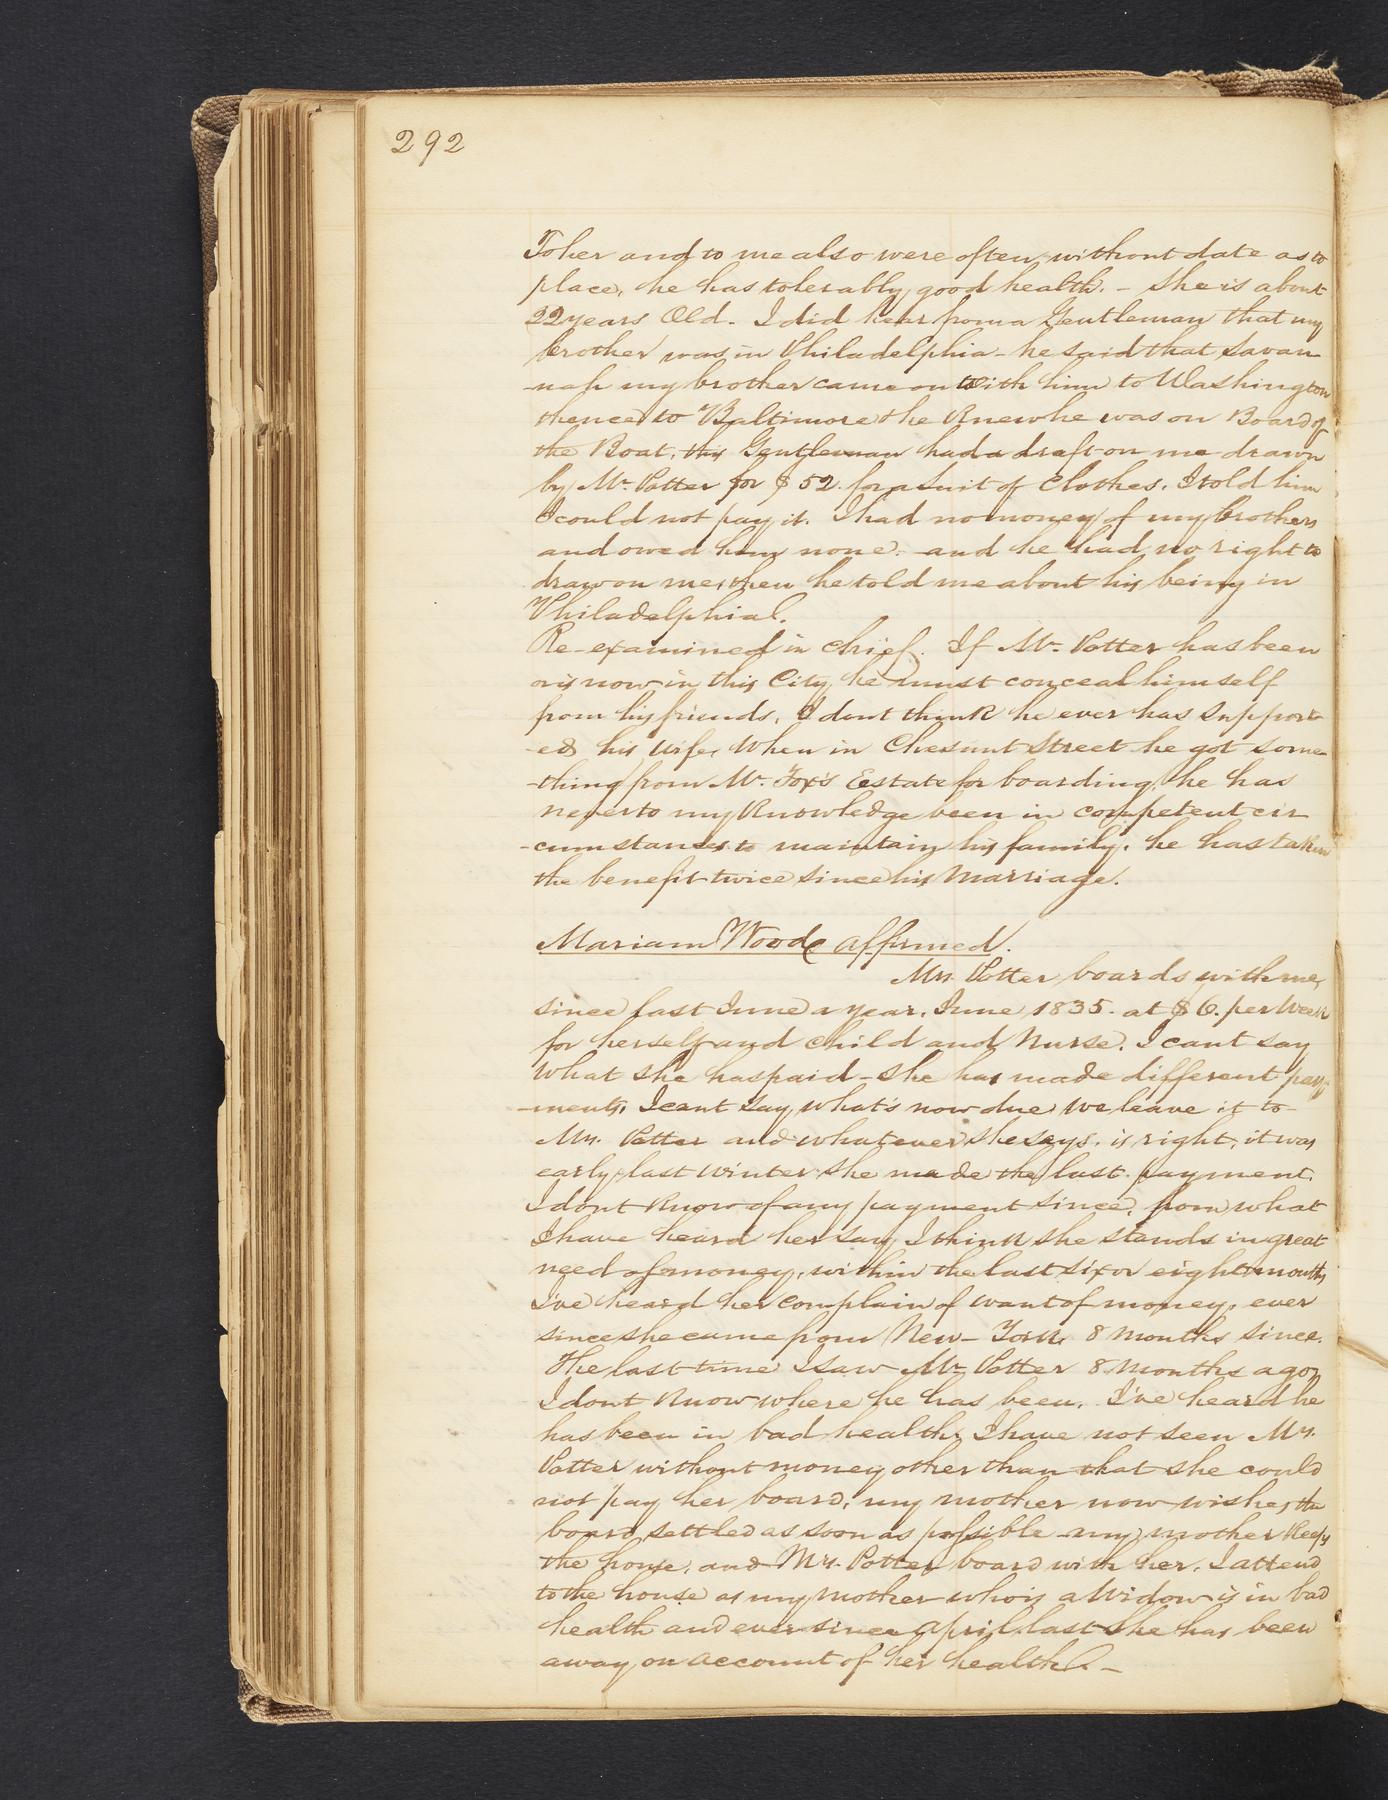 292
To her and to me also were often without date as to
place, he has tolerably good health. - She is about
22 years Old. I did hear from a Gentleman that my
brother was in Philadelphia - he said that Savan
-nah my brother came on with him to Washington
thence to Baltimore & he Knew he was on Board of
the Boat, this Gentleman had a draft on me drawn
by Mr. Potter for $52. for a Suit of Clothes. I told him
I could not pay it. I had no money of my brothers
and owed him none. and he had no right to
draw on me, then he told me about his being in
Philadelphia.
Re-examined in chief. If Mr. Potter has been
or is now in this City, he must conceal himself
from his friends, I dont think he ever has Support
-ed his wife, When in Chesnut Street he got some
-thing from Mr. Fox's Estate for boarding, he has
never to my Knowledge been in competent cir
-cumstances to maintain his family. he has taken
the benefit twice since his Marriage.
Mariam Woode affirmed.
Mrs Potter boards with me,
since last June a year. June 1835. at $6. per Week
for herself and Child and Nurse. I cant say
what she has paid - She has made different pay
-ments. I cant say what's now due we leave it to
Mrs. Potter and whatever she says. is right, it was
early last winter she made the last payment.
I dont Know of any payment since, from what
I have heard her say I think she stands in great
need of money, within the last six or eight months
I've heard her complain of want of money, ever
since she came from New-York 8 months since.
The last time I saw Mr Potter 8 months ago,
I dont Know where he has been. I've heard he
has been in bad health. I have not seen Mrs.
Potter without money other than that she could
not pay her board, my mother now wishes the
board settled as soon as possible - my mother Keeps
the house, and Mrs. Potter board with her. I attend
to the house as my mother who is a Widow is in bad
health and ever since April last she has been
away on account of her health. -